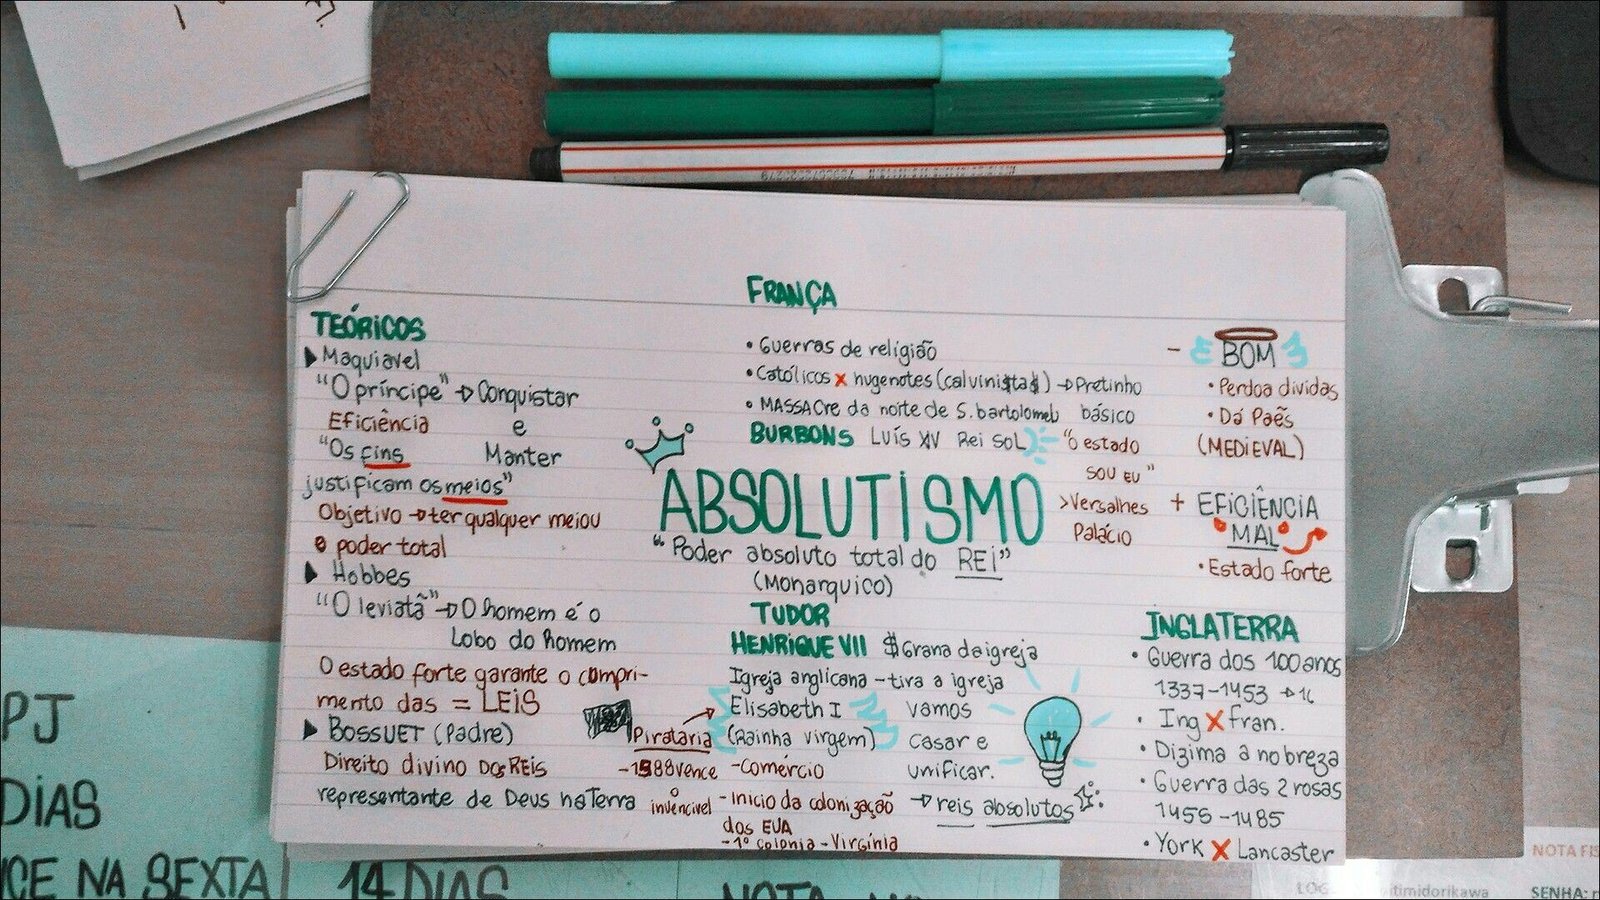 TEÓRICOS
Maquiavel
"O príncipe" → Conquistar
Eficiência e
"Os fins Manter
justificam os meios"
Objetivo → ter qualquer meiou
o poder total
Hobbes
"O leviatã" → O homem é o
Lobo do homem
O estado forte garante o compri-
mento das = LEIS
BOSSUET (Padre)
Direito divino DOS REIS
representante de Deus na Terra
FRANÇA
• Guerras de religião
• Católicos x hugenotes (calvinistas) → Pretinho
• MASSAcre da noite de S. bartolomeu básico
BURBONS Luís XIV Rei SoL "o estado
sou eu"
>Versalhes
Palácio
ABSOLUTISMO
"Poder absoluto total do REI"
(Monarquico)
- BOM
• Perdoa dividas
• Dá Paẽs
(MEDIEVAL)
+ EFICIÊNCIA
MAL
• Estado forte
TUDOR
HENRIQUE VII $Grana da igreja
Igreja anglicana - tira a igreja
Elisabeth I vamos
(Rainha virgem) casar e
unificar.
→ reis absolutos
Pirataria
-1588 vence
o
invencivel
-comércio
- Inicio da colonização
dos EUA
- 1º colonia - Virgínia
INGLATERRA
• Guerra dos 100 anos
1337-1453
• Ing X Fran.
• Dizima a nobreza
• Guerra das 2 rosas
1455-1485
• York X Lancaster
PJ
DIAS
CE NA SEXTA
14 DIAS
NOTA
NOTA FIS
LOG
itimidorikawa
SENHA: